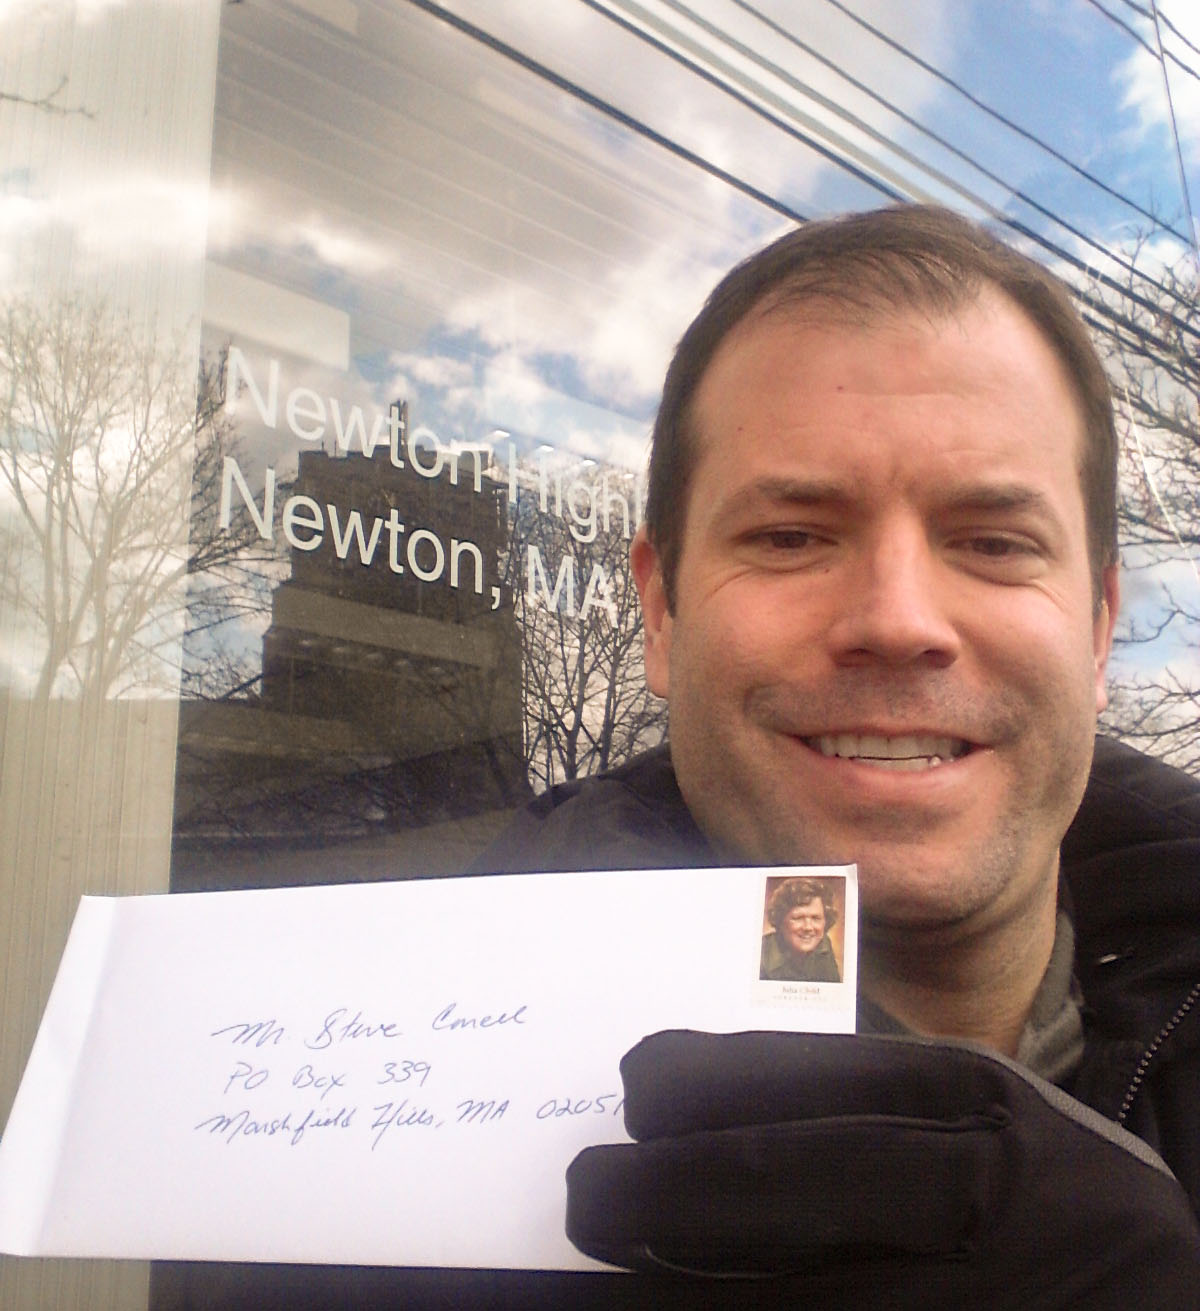 Newton Highl
Newton, MA
Julia Child
Mr Steve Connell
PO Box 339
Marshfield Hills, MA 02051